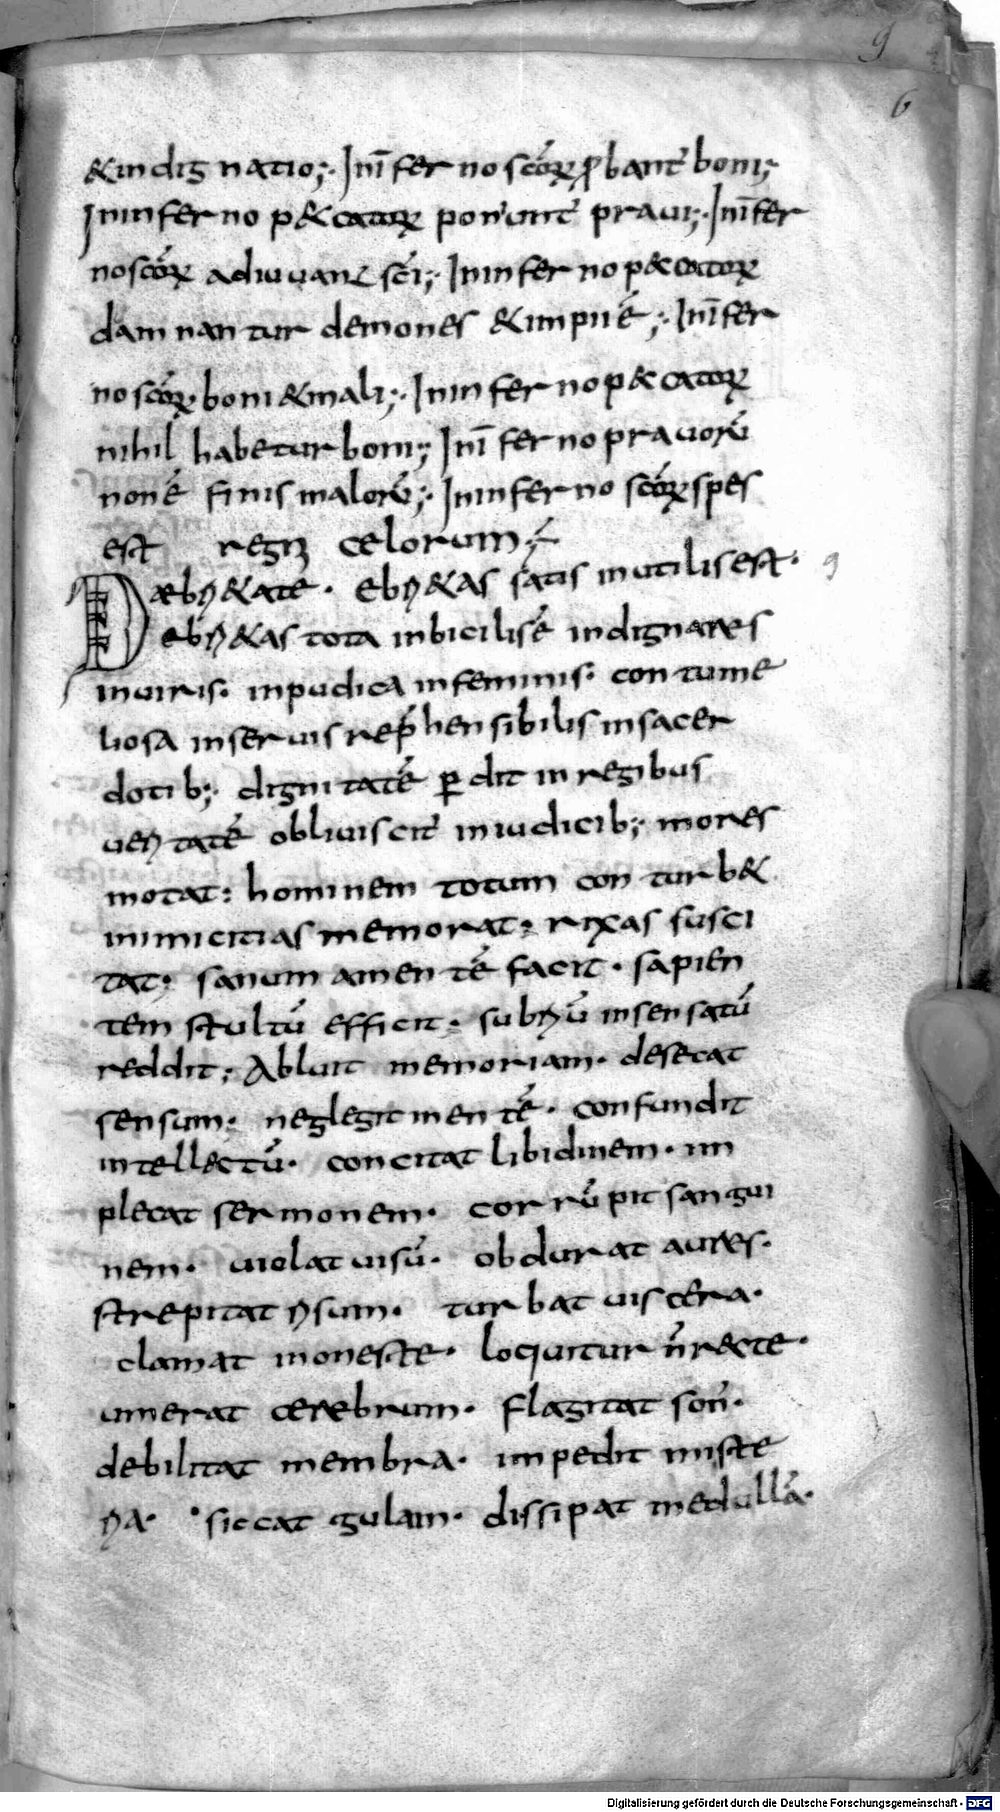 9
6
&indignatio;· Inı̄ferno scōꝝ ꝓbant̄ boni;
Ininferno p&catoꝝ poniunt̄ praui;· Inı̄fer
no scōꝝ adiuuant sc̄i;· Ininferno p&catoꝝ
damnantur demones &impiiē;· Inı̄fer
no scōꝝ boni &mali;· Ininferno p&catoꝝ
nihil habetur boni;; Inı̄ferno prauorū
nonē finis malorū;· Ininferno scōꝝ spes
est regnū celorum;
Dæbri&ate· Ebri&as satis inutilis est· 9
ebri&as tota inbicilisē indignares
inuiris· inpudica infeminis· contume
liosa inseruis rep̄hensibilis insacer
dotib;· dignitatē ꝑdit inregibus
ueritatē obliuiscit̄ iniudicib;· mores
motat: hominem totum conturb&
inimicitias memorat· rixas susci
tat· sanum amentē facit· sapien
tem stultū efficit· subriū insensatū
reddit· Abluit memoriam· desecat
sensum· neglegit mentē· confundit
intellectū· concitat libidinem· im
plecat sermonem· corrūpit sangui
nem· uiolat uisū· obdurat aures·
strepitat risum· turbat uiscera·
clamat inoneste· loquitur n̄ recte·
uinerat cerebrum· flagitat son̄·
debilitat membra· impedit miste
ria· siccat gulam· dissipat medullā·
Digitalisierung gefördert durch die Deutsche Forschungsgemeinschaft - DFG